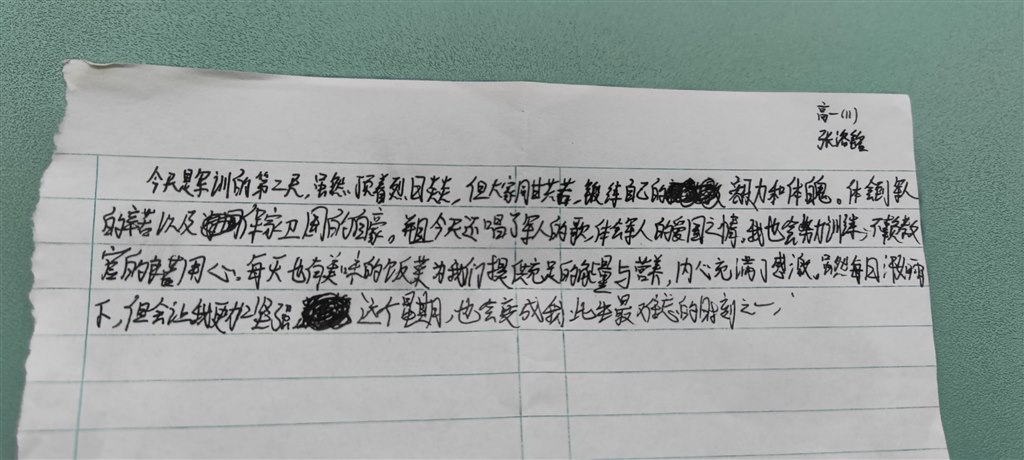 高一(11)
张洛
今天是军训的第二天,虽然顶着烈日炎炎,但大家同甘共苦,锻炼自己的毅力和体魄。体会到军人
的辛苦以及保家卫国的自豪。并且今天还唱了军人的歌,体会军人的爱国之情,我也会努力训练,不负教
官的良苦用心。每天也有美味的饭菜为我们提供充足的能量与营养,内心充满了感激。虽然每日
下,但会让我更加坚强 这个星期,也会变成我此生最难忘的时刻之一,